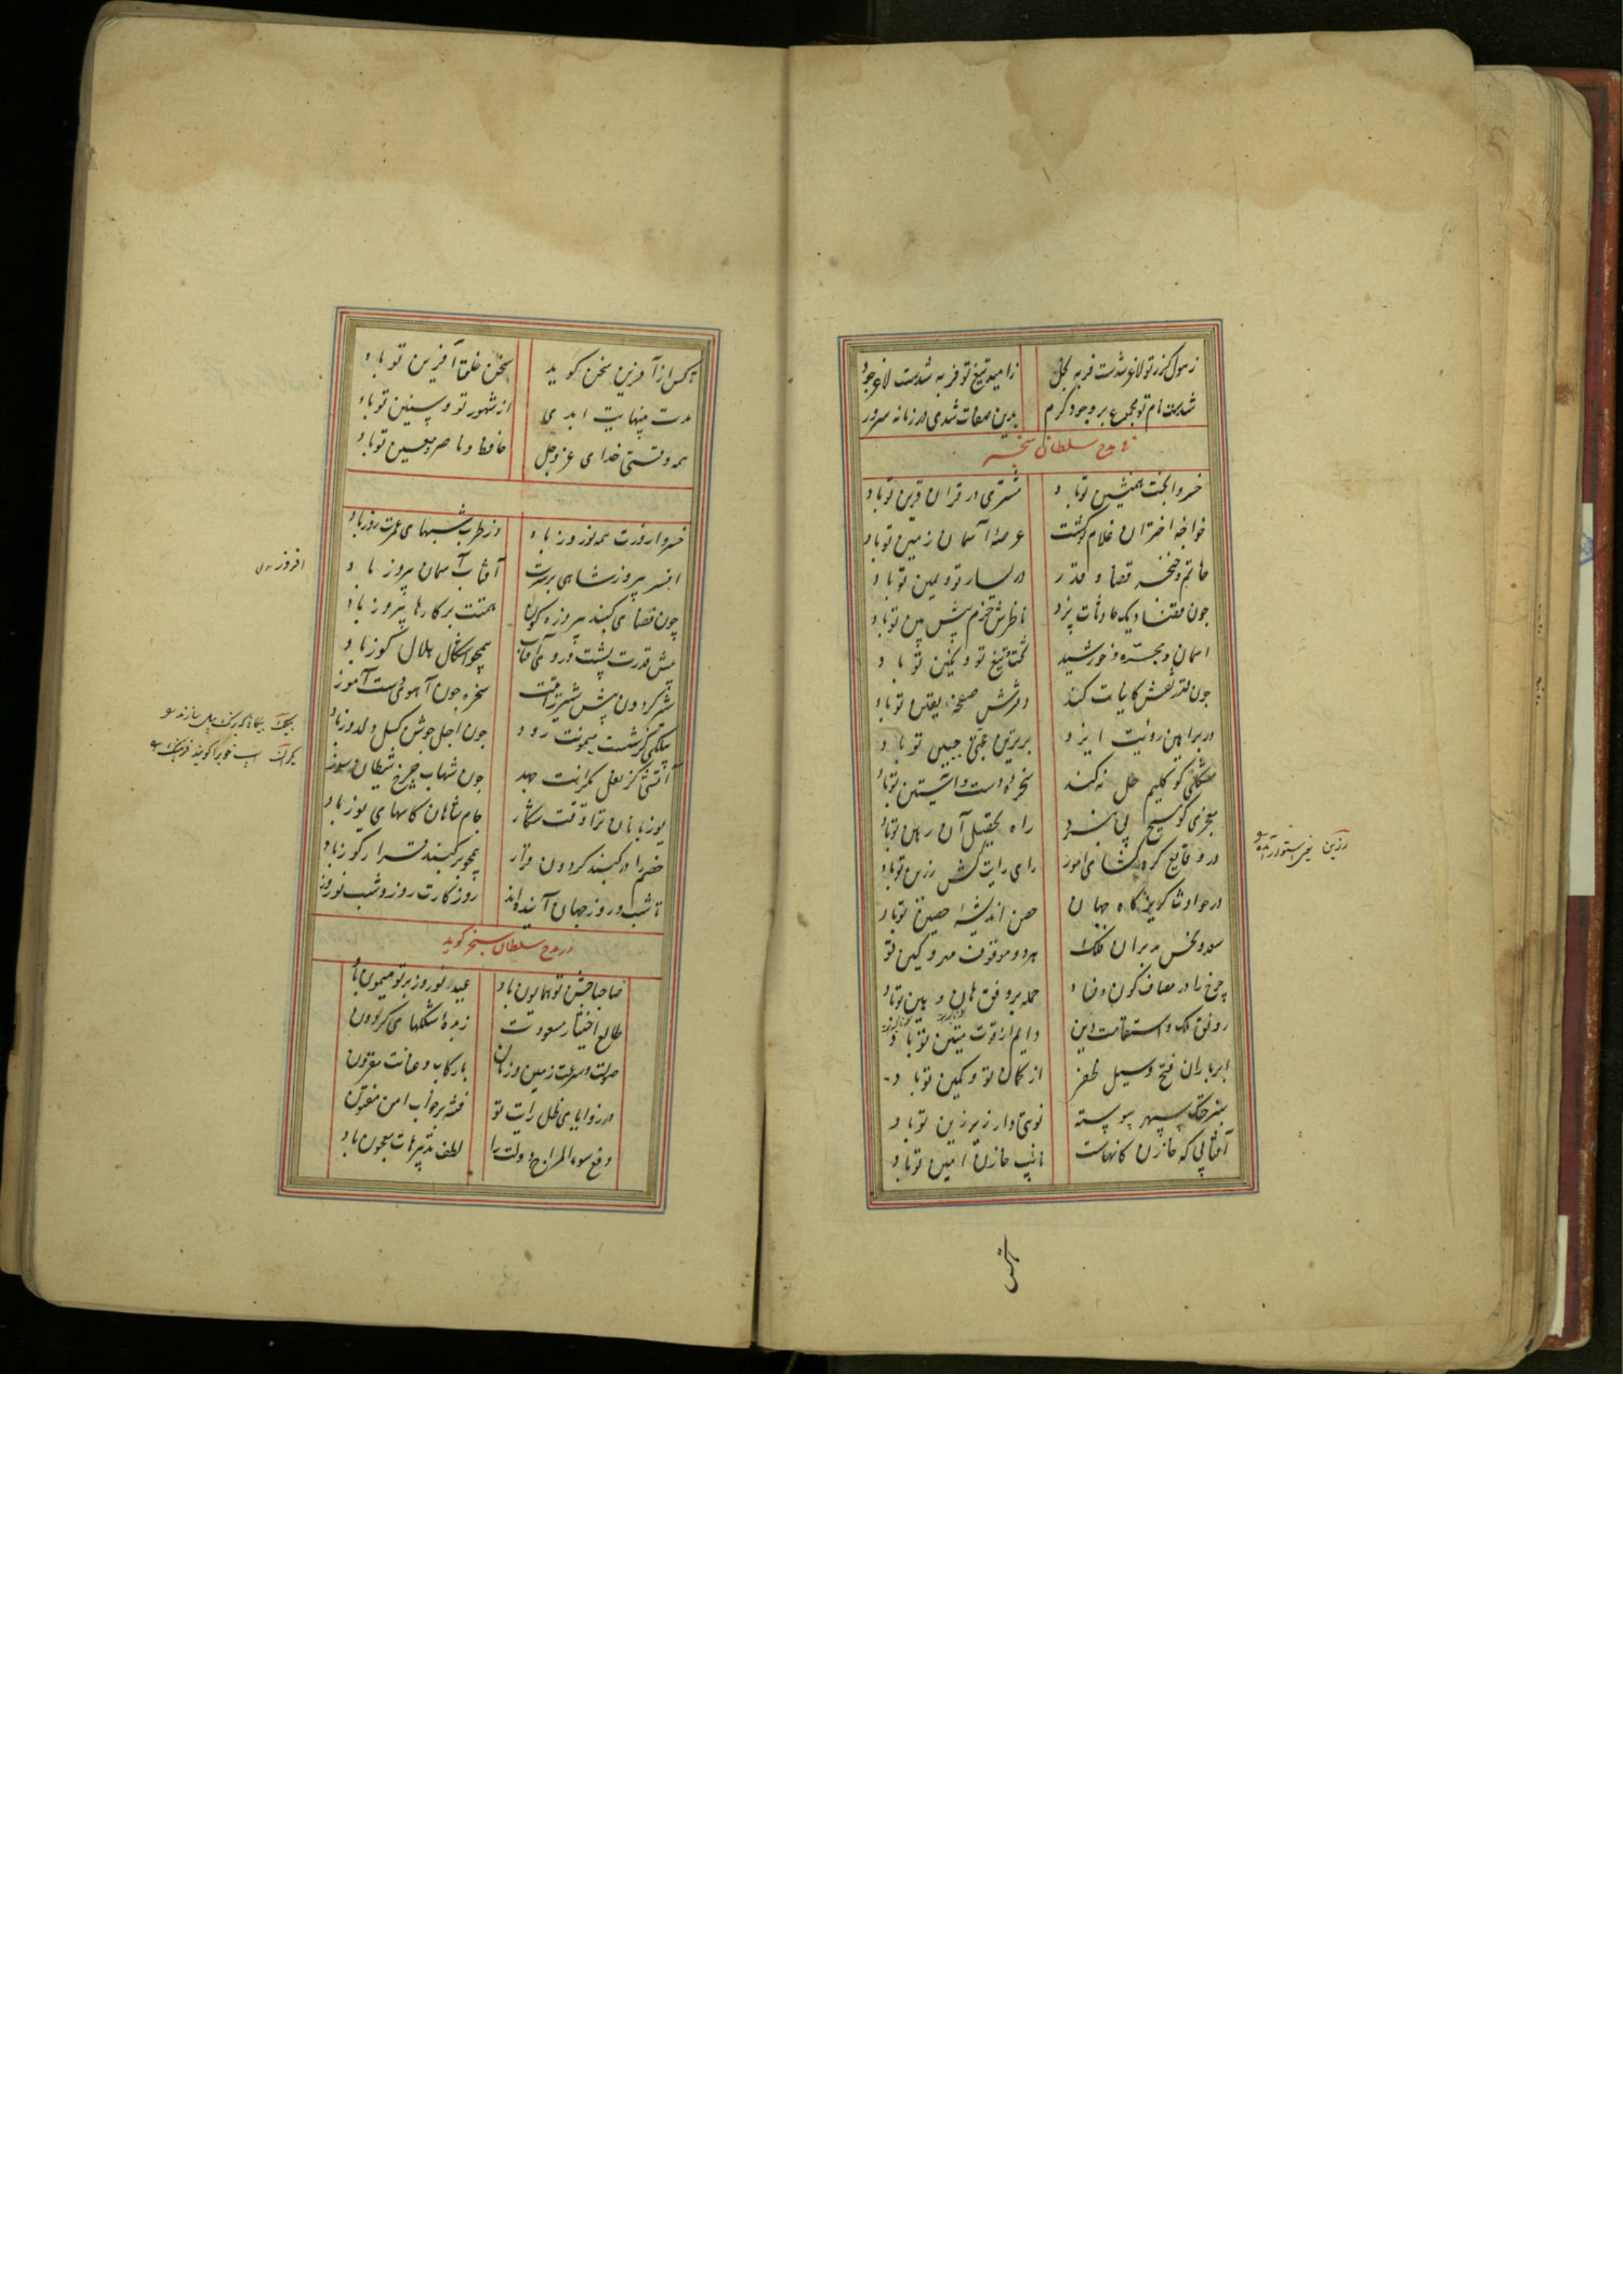 ز هول کرز تو لاغر شدست فربه بخل	ز امید تیغ تو فربه شدست لاغر جود
شدست نام تو مجموع بر وجود کرم	بدین صفات شدی در زمانه سرور
در مدح سلطان سنجر
خسروا بخت همنشین تو باد	مشتری در قران قرین تو باد
خواجه اختران غلام تو گشت	عرصه آسمان زمین تو باد
خاتم و خنجر قضا و قدر	در یسار تو و یمین تو باد
چون قضا دیک حادثات پزد	ناظرش حزم پیش بین تو باد
آسمان و مجره و خورشید	تخت و تیغ تو و نگین تو باد
چون قدر نقش کاینات کند	دفترش صفحه یقین تو باد
در براهین رویت ایزد	برترین حجتی جبین تو باد
مشکلی کو کلیم حل نکند	سخره دست و آستین تو باد
معجزی کو مسیح پی نبرد	راه تحقیق آن رهین تو باد
در وقایع گره گشای امور	رای رایت کش رزین تو باد
در حوادث گریزگاه جهان	حصن اندیشه حصین تو باد
سعد و نحس مدبران فلک	هر دو موقوف مهر و کین تو
چرخ را در مصاف کون و فساد	حمله بر وفق هان و هین تو باد
رونق ملک و استقامت دین	دایم از قوت متین تو باد
ابر باران فتح و سیل ظفر	از کمان تو و کمین تو باد
سبز خنک سپهر پیوسته	نوبتی وار زیر زین تو باد
آفتابی که خازن کانهاست	نایب خازن امین تو باد
رزین یعنی استوار
تا کس از آفرین سخن گوید	سخن خلق آفرین تو باد
مدت بینهایت ابدی	از شهور تو و سنین تو باد
همه وقتی خدای عز و جل	حافظ و ناصر و معین تو باد
خسروا روزت همه نوروز باد	وز طرب شبهای عمرت روز باد
افسر پیروز شاهی بر سرت	آفتاب آسمان پیروز باد
چون قضای گنبد پیروزه گون	همتت بر کارها پیروز باد
پیش قدرت پشت و روی آفتاب	همچو اشکال هلال کوز باد
شیر گردون پیش شیر رایتت	سخره چون آهوی دست آموز
بیلکی کز شست میمونت رود	چون اجل جوشن گسل و لدوز باد
آتشی کز نعل یکرانت جهد	چون شهاب چرخ شیطان سوز
یوزبانان ترا وقت شکار	جام شاهان کاسهای یوز باد
خصم را در گنبد گردون قرار	همچو بر گنبد قرار گوز باد
تا شب و روز جهان آینده اند	روزگارت روز و شب نوروز
در مدح سلطان سنجر گوید
صاحبا جنبش تو همایون باد	عید نوروز بر تو میمون باد
طالع اختیار مسعودت	زبده شکلهای گردون
صولت و سرعت زمین و زمان	با رکاب و عنانت مقرون
در زوایای ظل رایت تو	فتنه بر خواب امن مفتون
دفع سوء المزاج دولت را	لطف تدبیرهات معجون باد
افروز